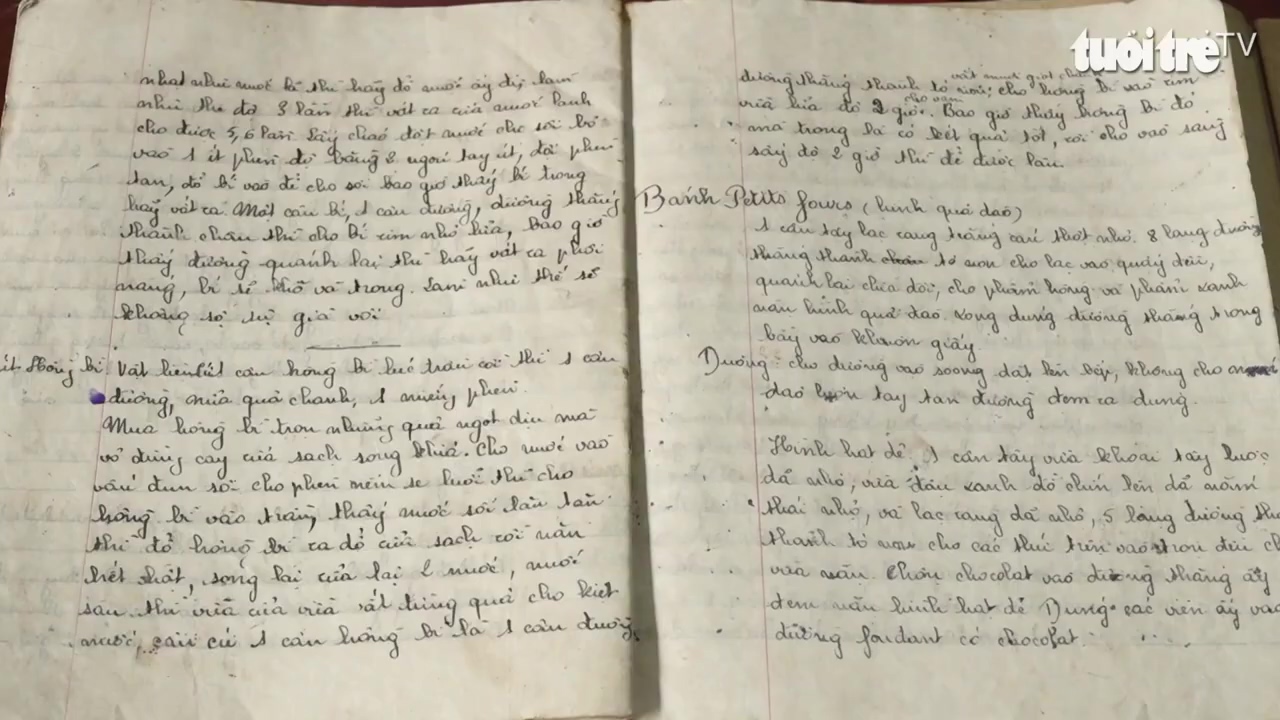 tuổi trẻ TV
nhat như nước bí thì hãy đổ nước ấy đi, làm
như thế độ 3 lần thì vớt ra rửa nước lạnh
cho được 5, 6 lần. Lấy chảo đột nước cho sôi bỏ
vào 1 ít phèn độ bằng 2 ngón tay út, đợi phèn
tan, đổ bí vào để cho sôi bao giờ thấy bí trong
hãy vớt ra. Một cân bí, 1 cân đường, đường thắng
thành châu thì cho bí rim nhỏ lửa, bao giờ
thấy đường quánh lại thì hãy vớt ra phơi
nắng, bí sẽ khô và trong. Làm như thế sẽ
không sợ sự giá vôi
ứt Hồng bì. Vật liệu: 1 cân hồng bì lúc tươi còn thì 1 cân
đường, nửa quả chanh, 1 miếng phèn.
Mua hồng bì trọn những quả ngọt dịu mà
vỏ đừng cay rửa sạch song khía. Cho nước vào
vấu đun sôi cho phèn nếm se lưỡi thì cho
hồng bì vào trần, thấy nước sôi lăn tăn
thì đổ hồng bì ra rổ rửa sạch rồi nặn
hết hột, song lại rửa lại 2 nước, nước
sau thì vừa rửa vừa vắt từng quả cho kiệt
nước, cứ 1 cân hồng bì là 1 cân đường,
vắt mươi giọt chanh
đường thắng thành tơ rồi; cho hồng bì vào rim
cho vani
vừa lửa độ 2 giờ. Bao giờ thấy hồng bì đỏ
mà trong là có kết quả tốt, rồi cho vào sàng
sấy độ 2 giờ thì để được lâu.
Bánh Petits fours (hình quả đào)
1 cân tây lạc rang trắng cán thật nhỏ. 8 lạng đường
thắng thành tơ non cho lạc vào quấy đều,
quánh lại chia đôi, cho phẩm hồng và phẩm xanh
nặn hình quả đào. Xong dùng đường thắng trong
bày vào khuôn giấy.
Đường: cho đường vào soong đặt lên bếp, không cho
đảo luôn tay tan đường đem ra dùng.
Hình hạt dẻ. 1 cân tây vừa khoai tây luộc
dã nhỏ, vừa đậu xanh đồ chín lên dã nắm
thái nhỏ, và lạc rang dã nhỏ, 5 lạng đường th
thành tơ non cho các thứ trên vào trộn đều
vừa nặn. Chôn chocolat vào đường thắng ấy
đem nặn hình hạt dẻ. Dúng các viên ấy vào
đường fondant có chocolat.